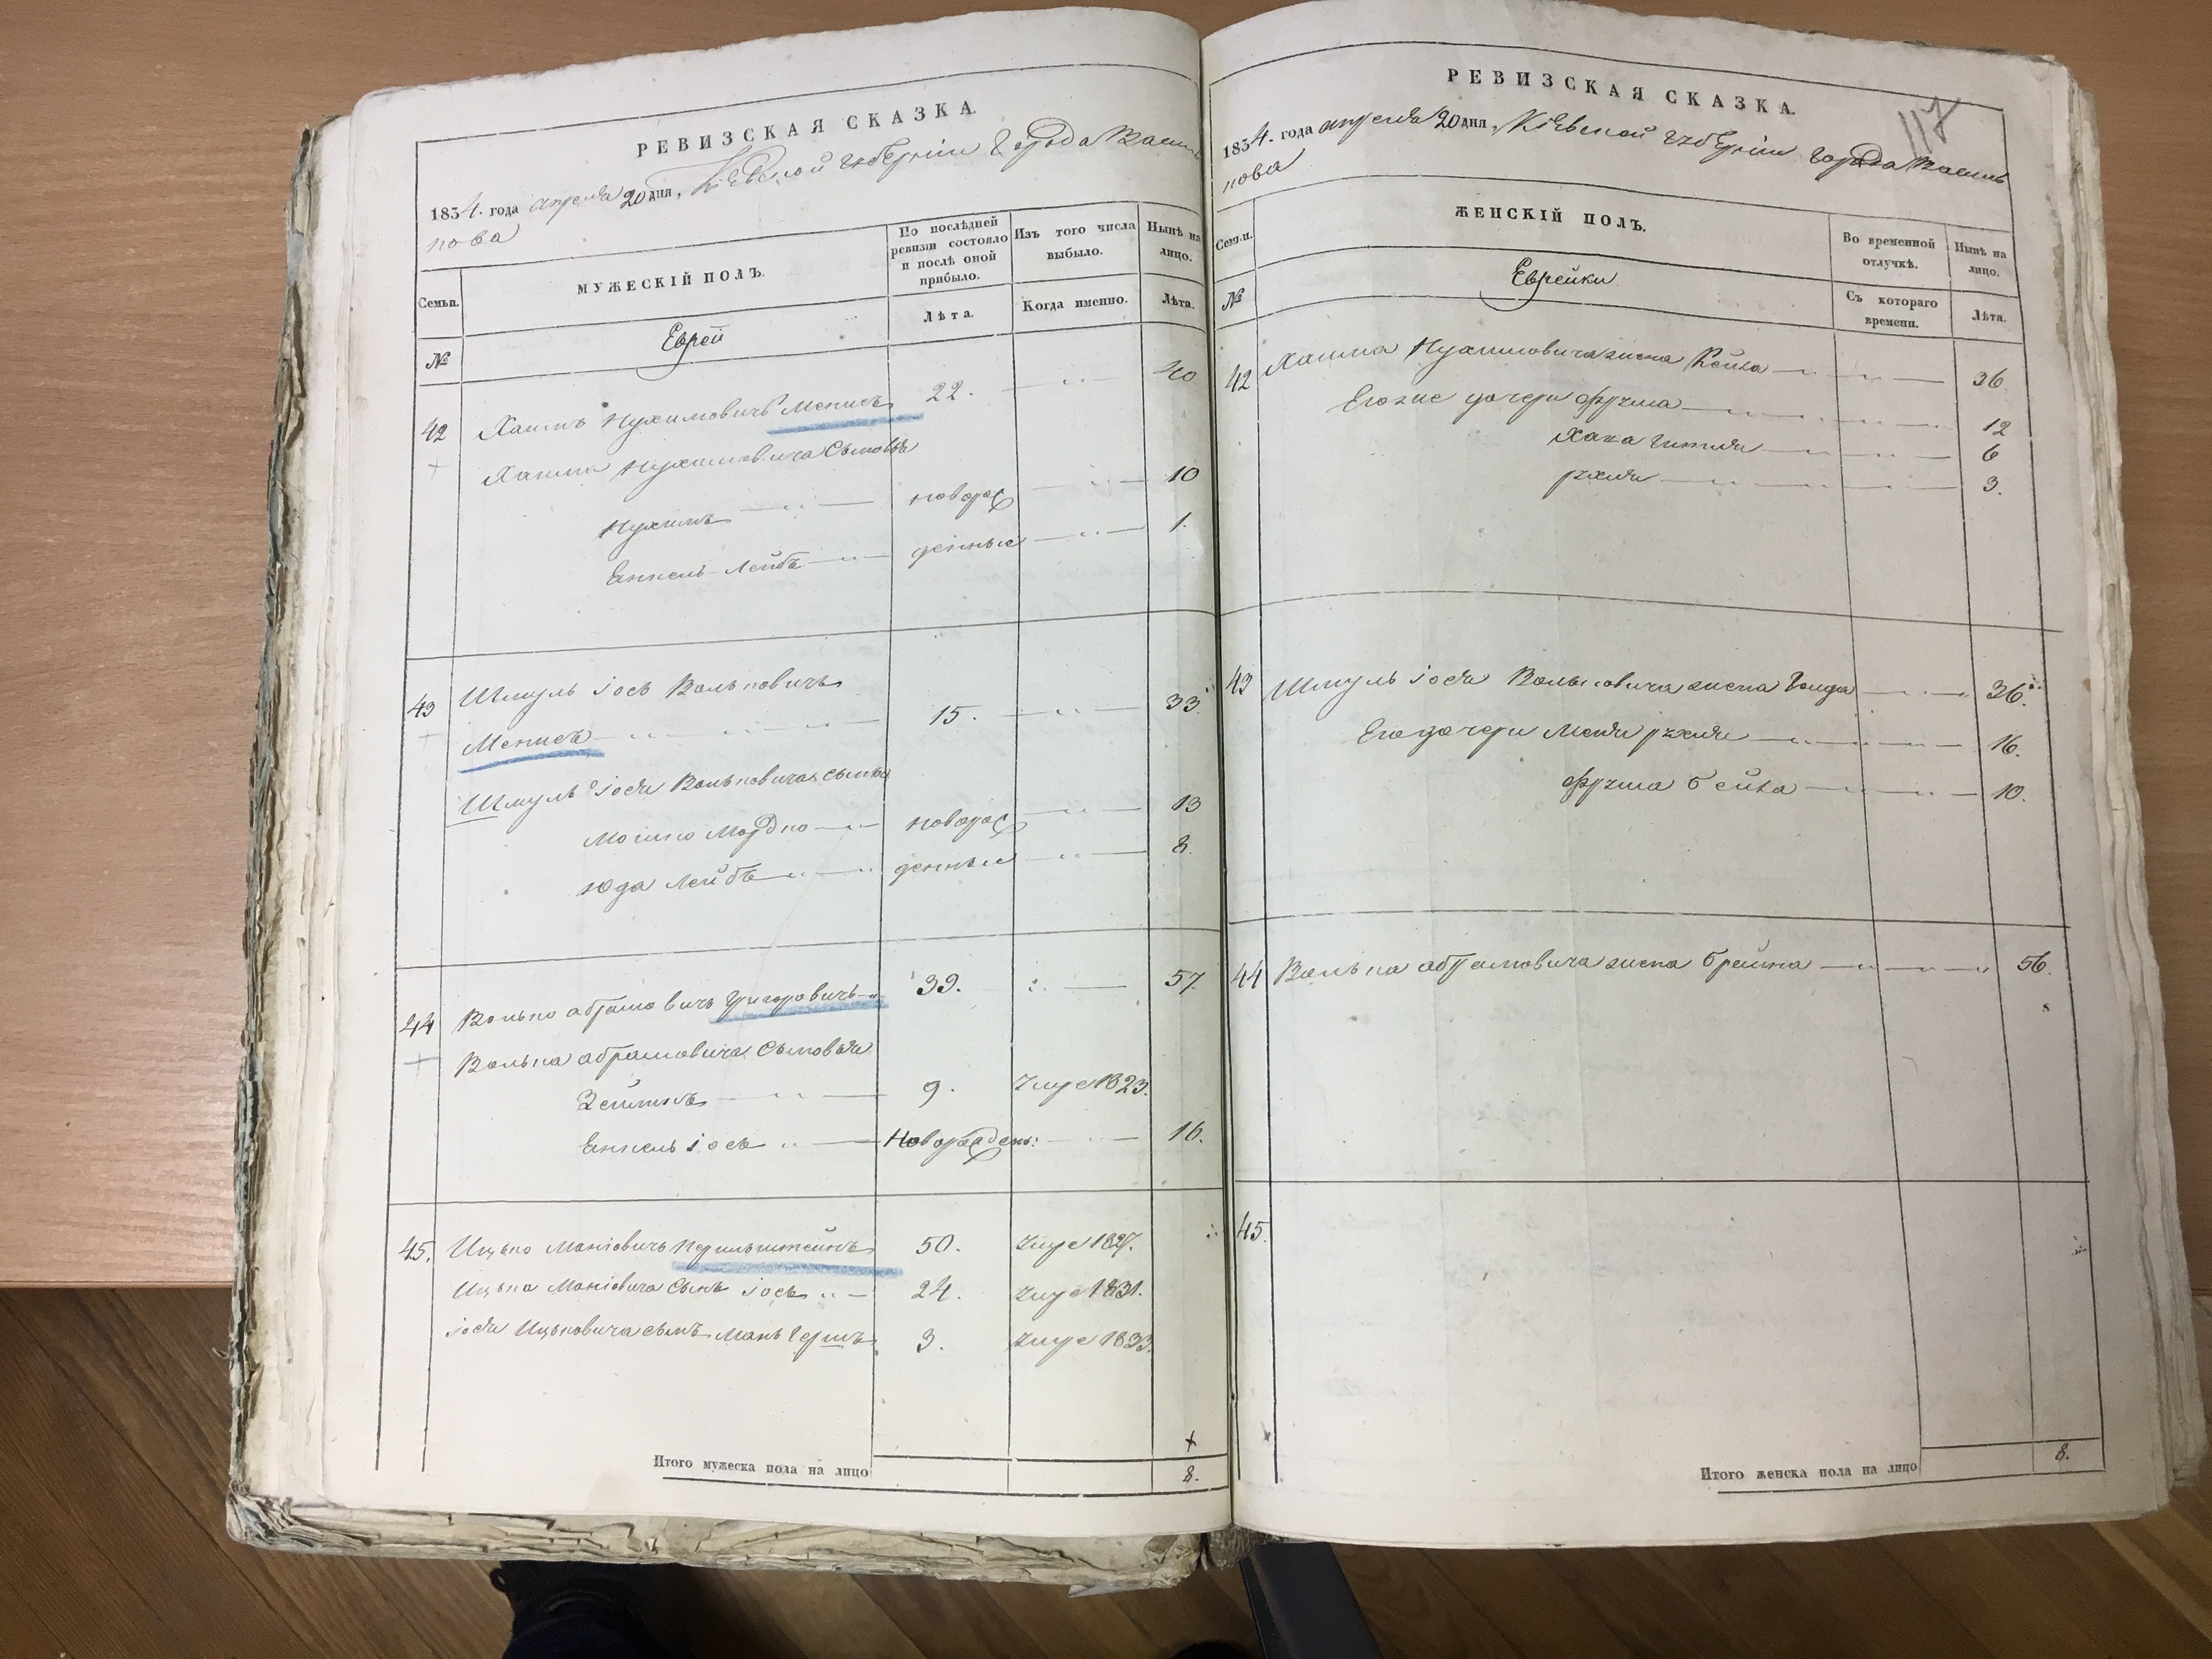 РЕВИЗСКАЯ СКАЗКА.
1834. года апреля 20 дня, Кіевской губерніи города Василь
кова
Семьи.
МУЖЕСКІЙ ПОЛЪ.
По послѣдней ревизіи состояло и послѣ оной прибыло.
Изъ того числа выбыло.
Нынѣ на лицо.
№
Еврей
Лѣта.
Когда именно.
Лѣта.
42 Хаимъ Нухимовичъ 22. 40
Хаима Нухимовича сыновья
Нухимъ новорож 10
Янкель Лейбъ денные 1.
43 Шмуль Іось Вольковичъ
15. 33
Шмуль Іося Вольковича сынъя
Мошко Мордко новорож 13
Юда Лейбъ денные 8.
44 Волько Абрамовичъ Григоровичъ 39. 57
Волька Абрамовича сыновья
Зейликъ 9. 1823.
Янкель Іось Новорожден: 16.
45. Ицько Маніовичъ 50. 1827.
Ицька Маніовича сынъ Іось 24. 1831.
Іося Ицьковича сынъ Мань Гершъ 3. 1833.
Итого мужеска пола на лицо 8.
РЕВИЗСКАЯ СКАЗКА.
117
1834. года апреля 20 дня, Кіевской губерніи города Василь
кова
Семьи.
ЖЕНСКІЙ ПОЛЪ.
Во временной отлучкѣ.
Нынѣ на лицо.
№
Еврейки
Съ котораго времени.
Лѣта.
42 Хаима Нухимовича жена Рейза 36
Его же дочери Фрума 12
Хана Гитля 6
Рухля 3.
43 Шмуль Іося Вольковича жена Голда 36.
Его дочери Рухля 16.
Фрума Бейла 10.
44 Волька Абрамовича жена Брейна 56.
45.
Итого женска пола на лицо 8.